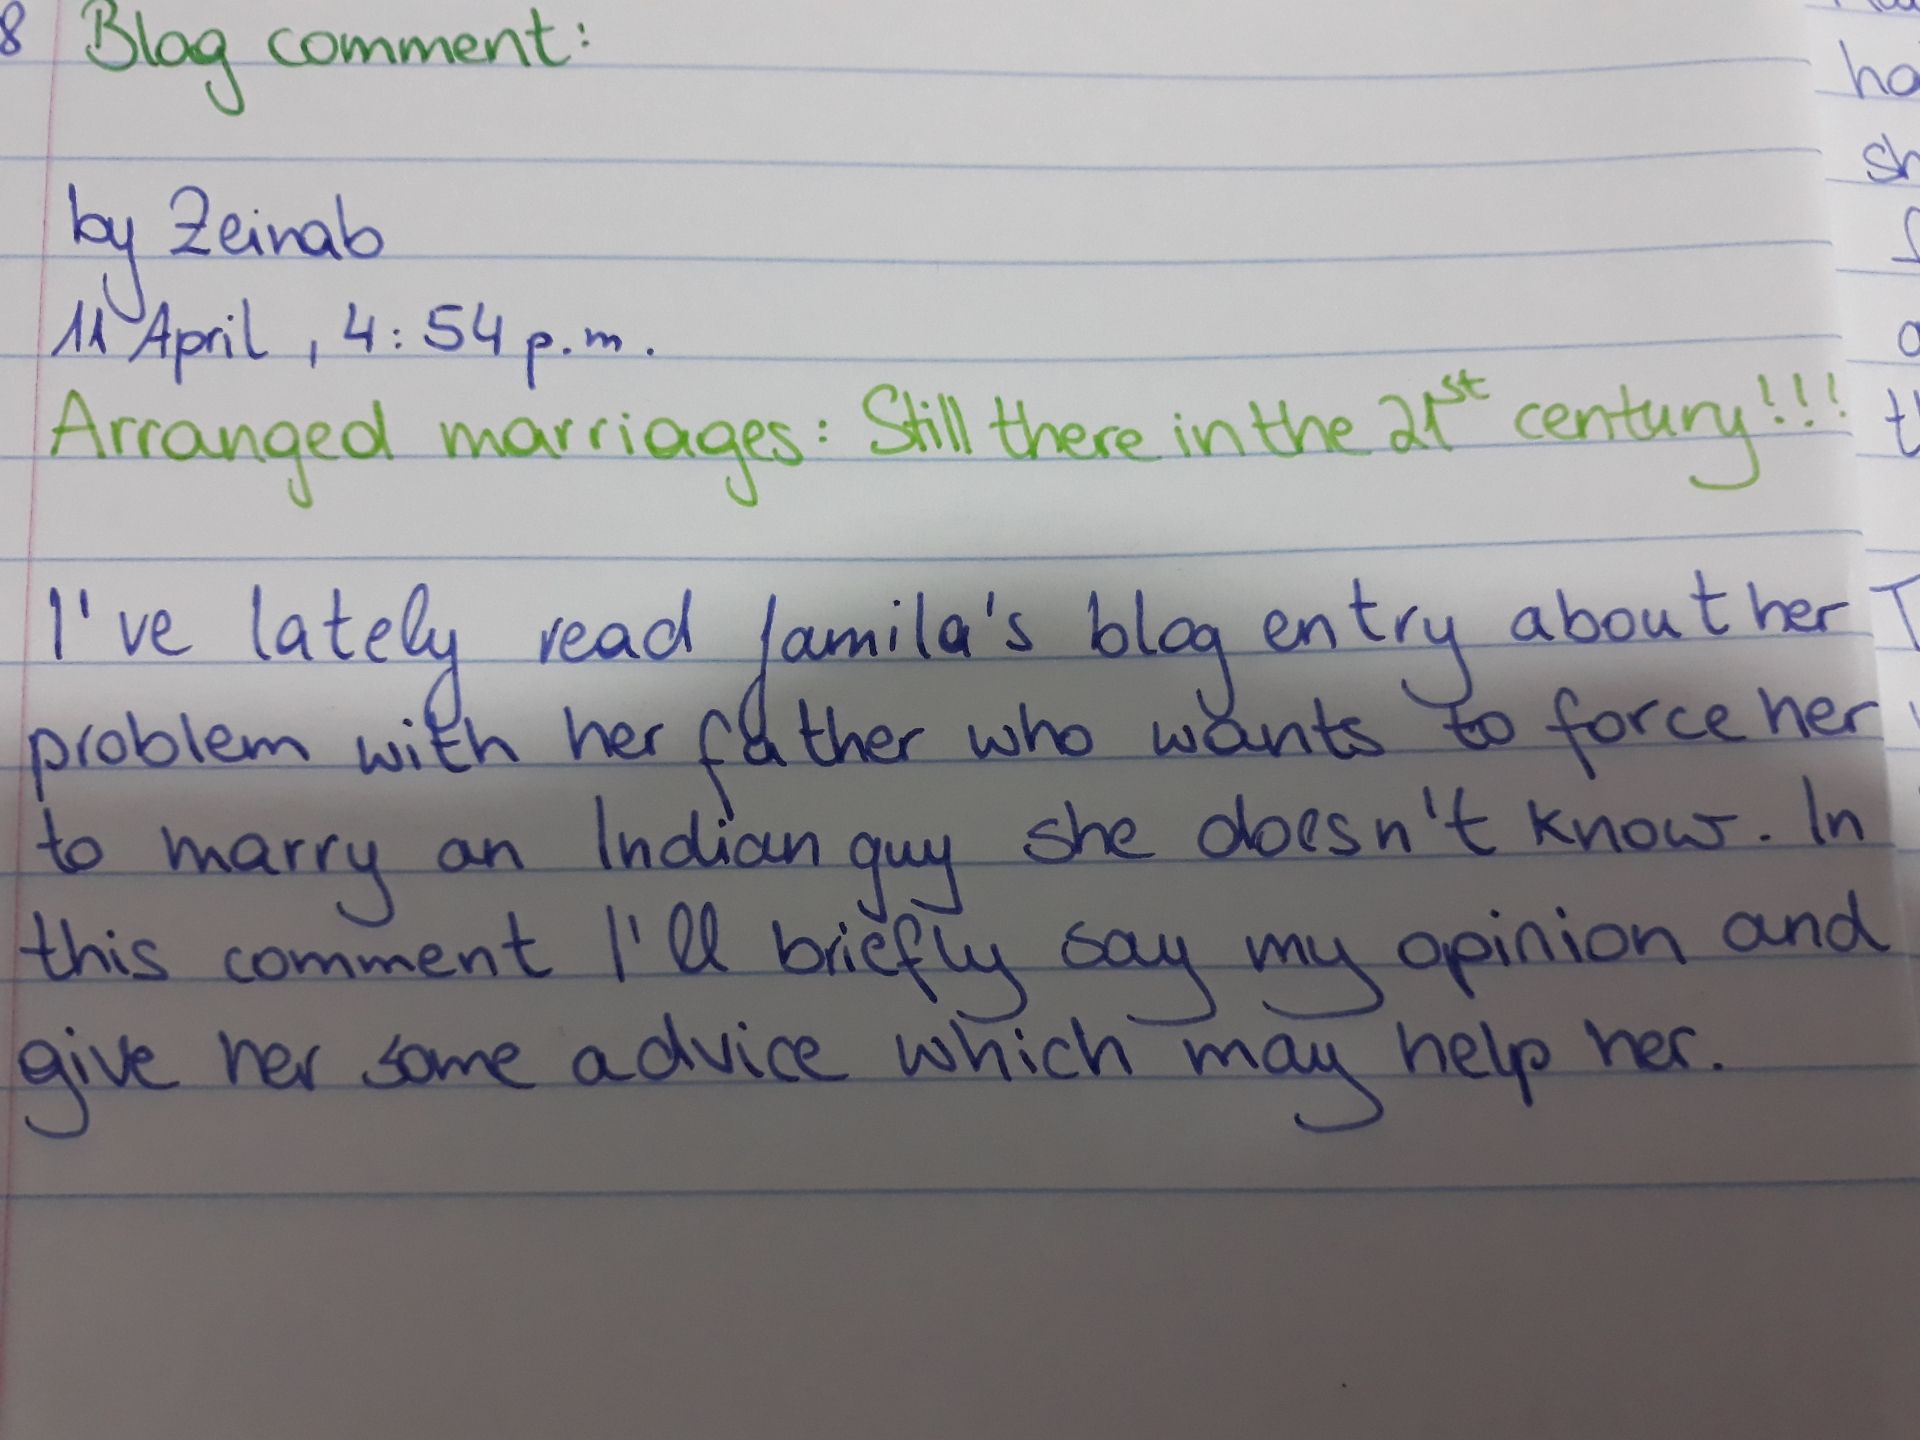 8 Blog comment:
by Zeinab
11 April, 4:54 p.m.
Arranged marriages: Still there in the 21st century!!!
I've lately read Jamila's blog entry about her
problem with her father who wants to force her
to marry an Indian guy she doesn't know. In
this comment I'll briefly say my opinion and
give her some advice which may help her.